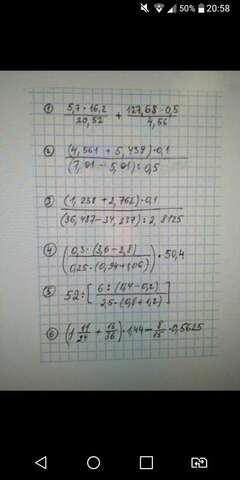 50% 20:58
① 5,7 · 16,2 / 20,52 + 127,68 · 0,5 / 4,56
② (4,561 + 5,439) · 0,1 / (7,01 - 5,01) : 0,5
③ (1,238 + 2,762) · 0,1 / (36,487 - 34,237) : 2,8125
④ (0,3 · (3,6 - 2,8) / 0,25 · (0,94 + 1,06)) · 50,4
⑤ 52 : [6 : (0,4 - 0,2) / 2,5 · (0,8 + 1,2)]
⑥ (1 11/24 + 13/36) · 1,44 - 8/15 · 0,5625